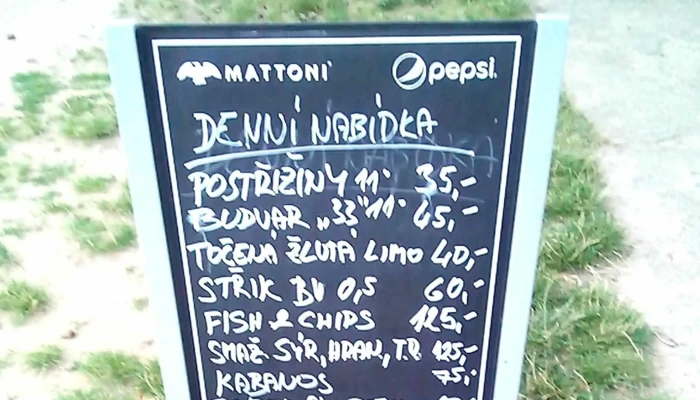 MATTONI
pepsi
DENNÍ NABÍDKA
POSTŘIŽINY 11° 35,-
BUDVAR „33" 11° 45,-
TOČENÁ ŽLUTÁ LIMO 40,-
STŘIK BV 0,5 60,-
FISH & CHIPS 125,-
SMAŽ SÝR, HRAN, T.O. 125,-
KABANOS 75,-